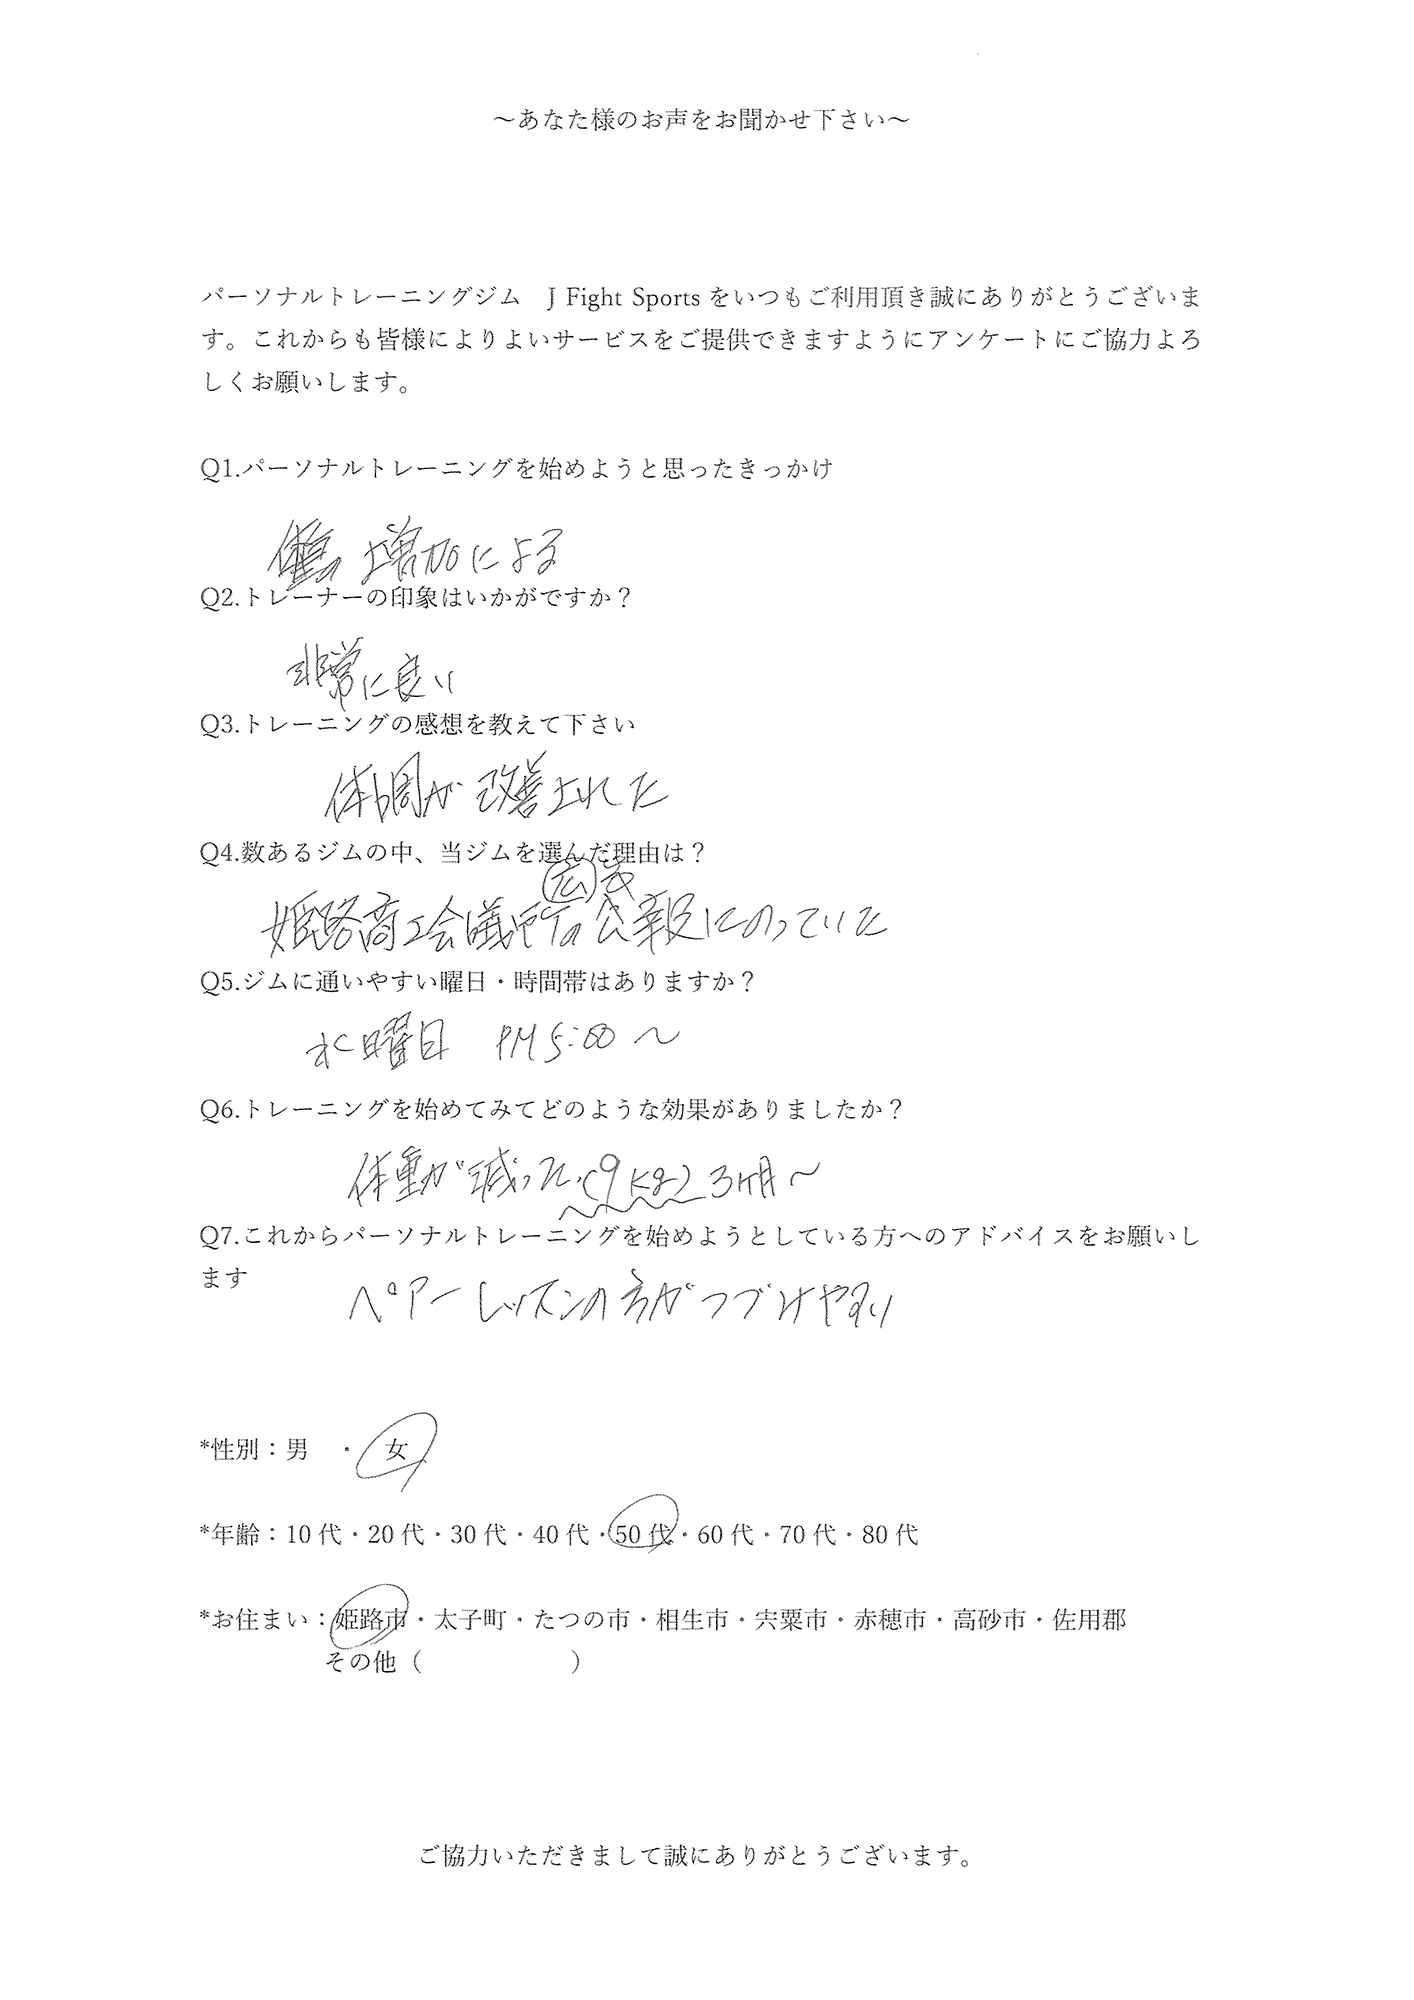 ～あなた様のお声をお聞かせ下さい～
パーソナルトレーニングジム　J Fight Sports をいつもご利用頂き誠にありがとうございま
す。これからも皆様によりよいサービスをご提供できますようにアンケートにご協力よろ
しくお願いします。
Q1.パーソナルトレーニングを始めようと思ったきっかけ
増加による
Q2.トレーナーの印象はいかがですか？
非常に良い
Q3.トレーニングの感想を教えて下さい
体調が改善された
Q4.数あるジムの中、当ジムを選んだ理由は？
広
姫路商工会議所の公報にのっていた
Q5.ジムに通いやすい曜日・時間帯はありますか？
水曜日　PM 5:00 ～
Q6.トレーニングを始めてみてどのような効果がありましたか？
体重が減った.(9kg) 3ヶ月～
Q7.これからパーソナルトレーニングを始めようとしている方へのアドバイスをお願いし
ます
ペアーレッスンの方がつづけやすい
*性別：男　・　女
*年齢：10 代・20 代・30 代・40 代・50 代・60 代・70 代・80 代
*お住まい：姫路市・太子町・たつの市・相生市・宍粟市・赤穂市・高砂市・佐用郡
その他（　　　　　　）
ご協力いただきまして誠にありがとうございます。